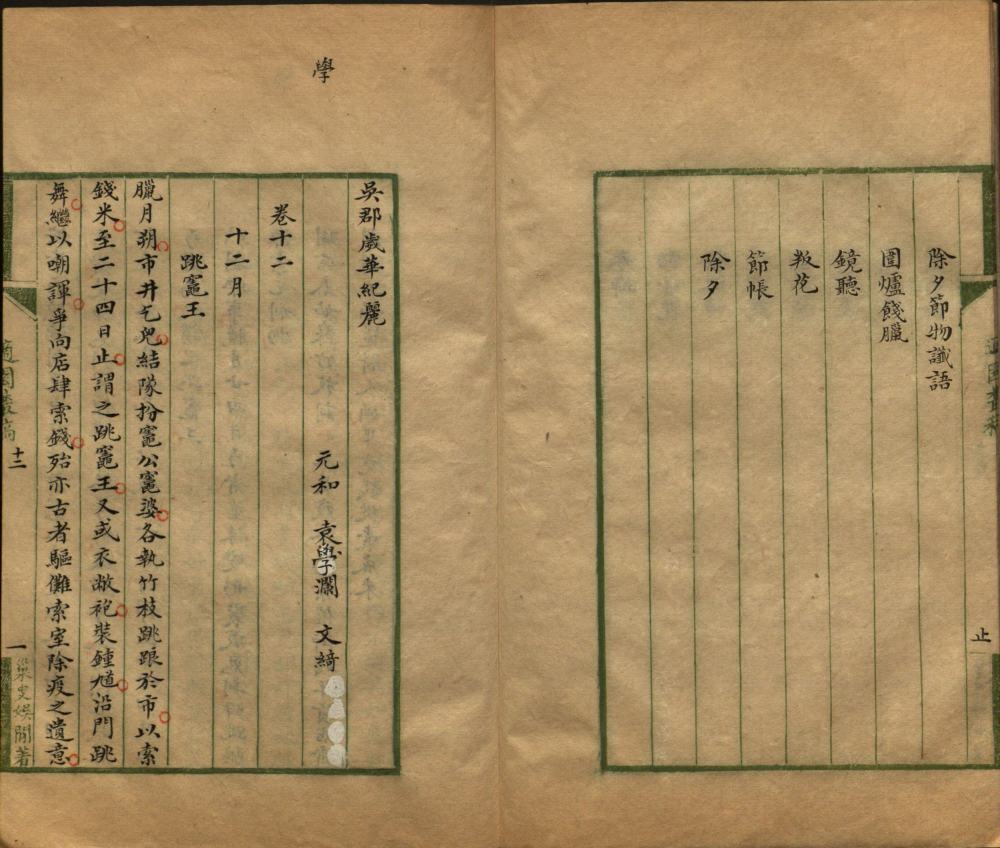 除夕節物讖語
圍爐餞臘
鏡聽
叛花
節帳
除夕
止
學
吳郡歲華紀麗
元和 袁學瀾 文綺
卷十二
十二月
跳竈王
臘月朔市井乞兒結隊扮竈公竈婆各執竹枝跳踉於市以索
錢米至二十四日止謂之跳竈王又或衣敝袍裝鍾馗沿門跳
舞繼以嘲諢爭向店肆索錢殆亦古者驅儺索室除疫之遺意
適園叢稿
十二
一
娛閒著